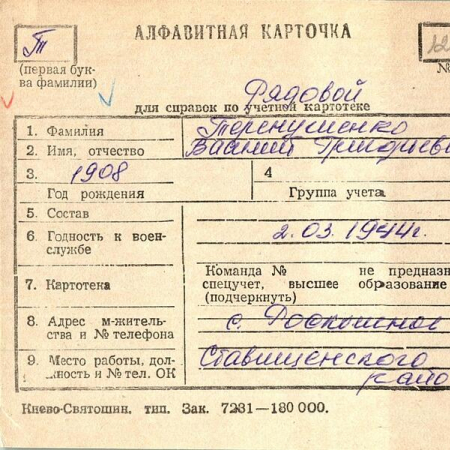 АЛФАВИТНАЯ КАРТОЧКА
Т
12
(первая бук-
ва фамилии)
№
Рядовой
для справок по учетной картотеке
1. Фамилия Теренушенко
2. Имя, отчество Василий Григорьеви
3. 1908 4
Год рождения Группа учета
5. Состав
6. Годность к воен-
службе
2.03.1944г.
7. Картотека
Команда № не предназн
спецучет, высшее образование
(подчеркнуть)
8. Адрес м-житель-
ства и № телефона
с. Роскошное
9. Место работы, дол-
жность и № тел. ОК
Ставищенского
райо
Киево-Святошин. тип. Зак. 7231—180 000.